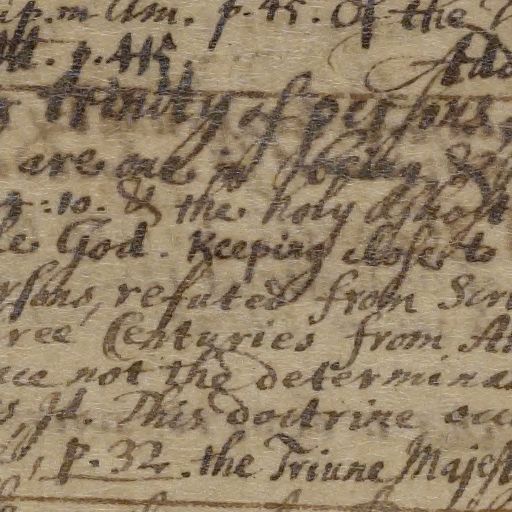 p. m Am. p. 45. Of the
p. 415.
trinity of persons,
are one
4:10. & the holy Ghost
God. Keeping closer to
refuted from Scri
ree Centuries from
not the determina
This doctrine
p. 32. the Triune Majest